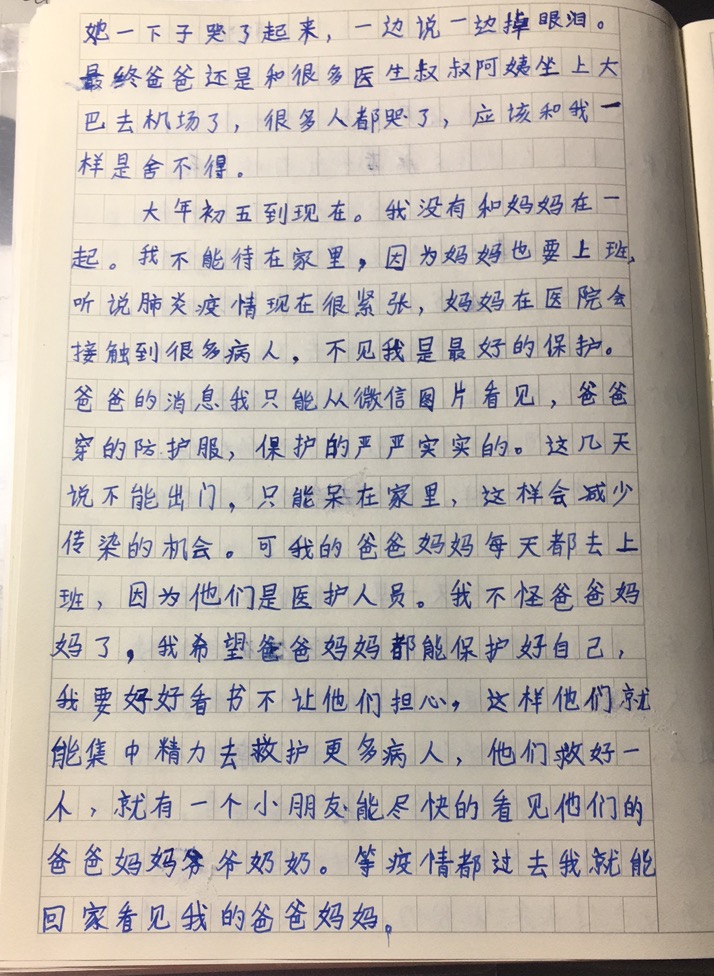 她一下子哭了起来，一边说一边掉眼泪。
最终爸爸还是和很多医生叔叔阿姨坐上大
巴去机场了，很多人都哭了，应该和我一
样是舍不得。
大年初五到现在。我没有和妈妈在一
起。我不能待在家里，因为妈妈也要上班，
听说肺炎疫情现在很紧张，妈妈在医院会
接触到很多病人，不见我是最好的保护。
爸爸的消息我只能从微信图片看见，爸爸
穿的防护服，保护的严严实实的。这几天
说不能出门，只能呆在家里，这样会减少
传染的机会。可我的爸爸妈妈每天都去上
班，因为他们是医护人员。我不怪爸爸妈
妈了，我希望爸爸妈妈都能保护好自己，
我要好好看书不让他们担心，这样他们就
能集中精力去救护更多病人，他们救好一
人，就有一个小朋友能尽快的看见他们的
爸爸妈妈爷爷奶奶。等疫情都过去我就能
回家看见我的爸爸妈妈。